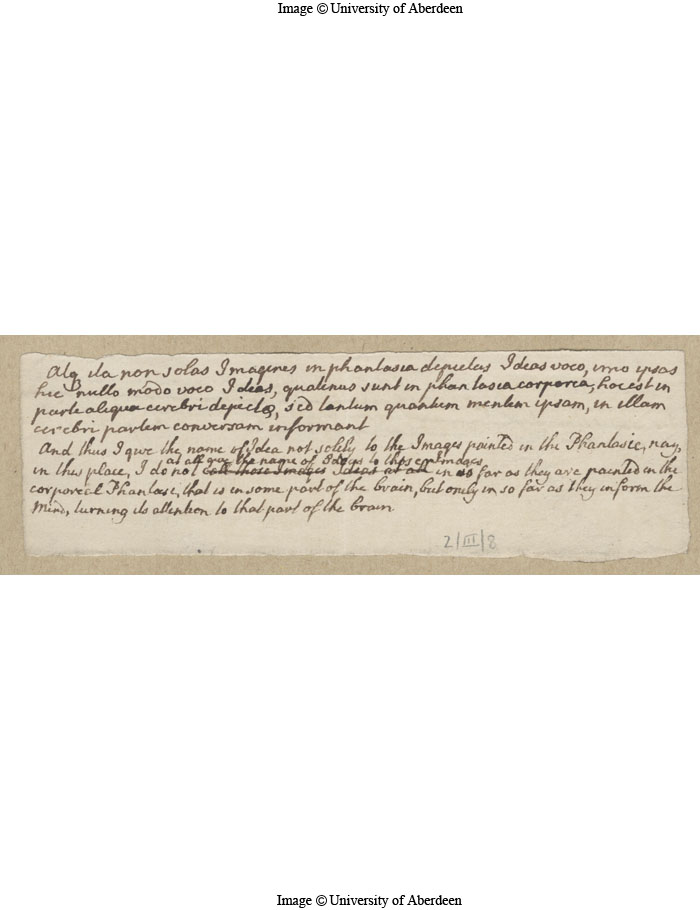 Image © University of Aberdeen
Atq ita non solas Imagines in phantasia depictas Ideas voco, imo ipsas
hic nullo modo voco Ideas, quatenus sunt in phantasia corporea, hoc est in
parte aliqua cerebri depictæ, sed tantum quantum mentem ipsam, in illam
cerebri partem conversam informant
And thus I give the name of Idea not solely to the Images painted in the Phantasie, nay,
at all give the name of Ideas to these Images
in this place, I do not call these Images Ideas at all in so far as they are painted in the
corporeal Phantasie, that is in some part of the brain, but onely in so far as they inform the
Mind, turning its attention to that part of the brain
2/III/8
Image © University of Aberdeen